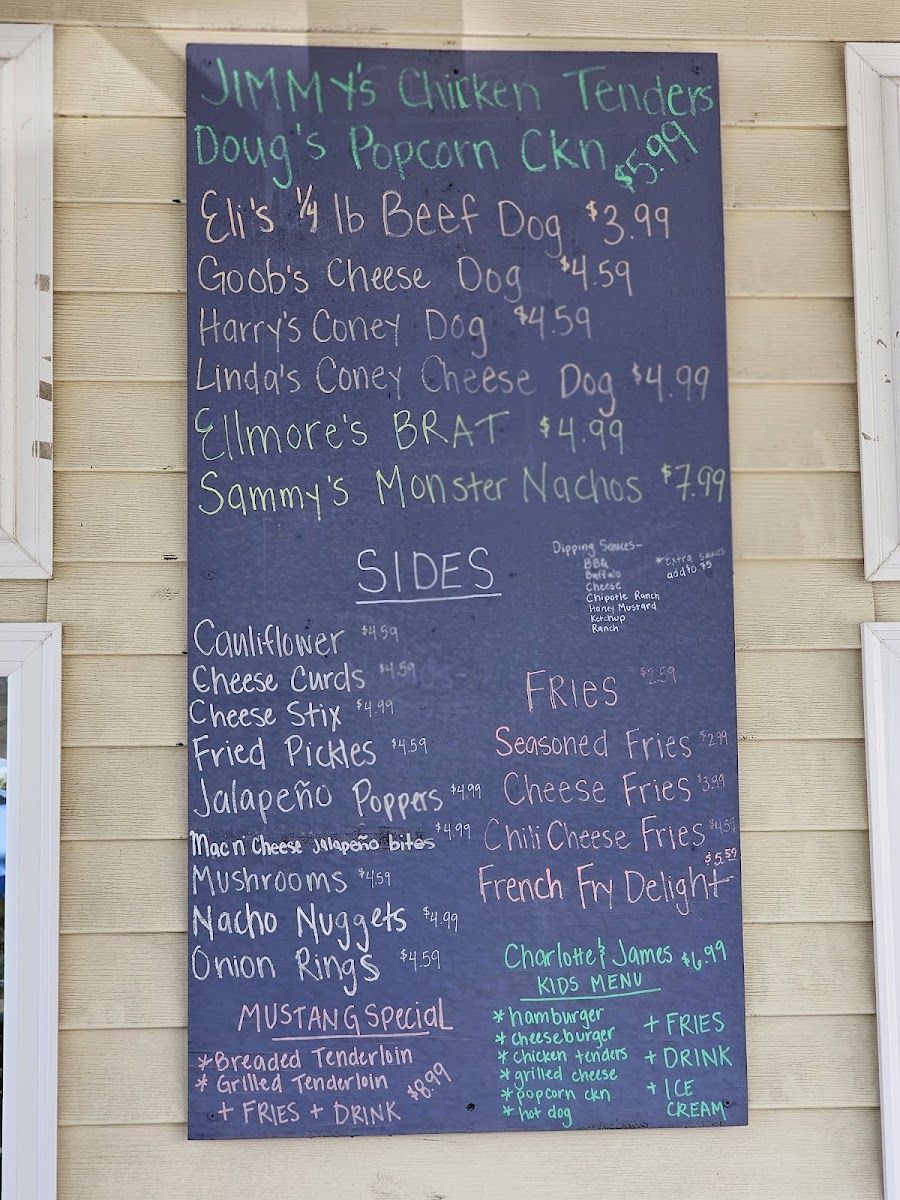 JIMMY's Chicken Tenders
Doug's Popcorn Ckn $5.99
Eli's 1/4 lb Beef Dog $3.99
Goob's Cheese Dog $4.59
Harry's Coney Dog $4.59
Linda's Coney Cheese Dog $4.99
Ellmore's BRAT $4.99
Sammy's Monster Nachos $7.99
SIDES
Dipping Sauces-
BBQ
Buffalo
Cheese
Chipotle Ranch
Honey Mustard
Ketchup
Ranch
*Extra Sauces
add $0.75
Cauliflower $4.59
Cheese Curds $4.59
Cheese Stix $4.99
Fried Pickles $4.59
Jalapeño Poppers $4.99
Mac n Cheese Jalapeño bites $4.99
Mushrooms $4.59
Nacho Nuggets $4.99
Onion Rings $4.59
FRIES $2.59
Seasoned Fries $2.99
Cheese Fries $3.99
Chili Cheese Fries $4.59
French Fry Delight $5.59
MUSTANG Special
*Breaded Tenderloin
* Grilled Tenderloin $8.99
+ FRIES + DRINK
Charlotte & James $6.99
KIDS MENU
*hamburger
*cheeseburger
*chicken tenders
*grilled cheese
*popcorn ckn
*hot dog
+ FRIES
+ DRINK
+ ICE
CREAM